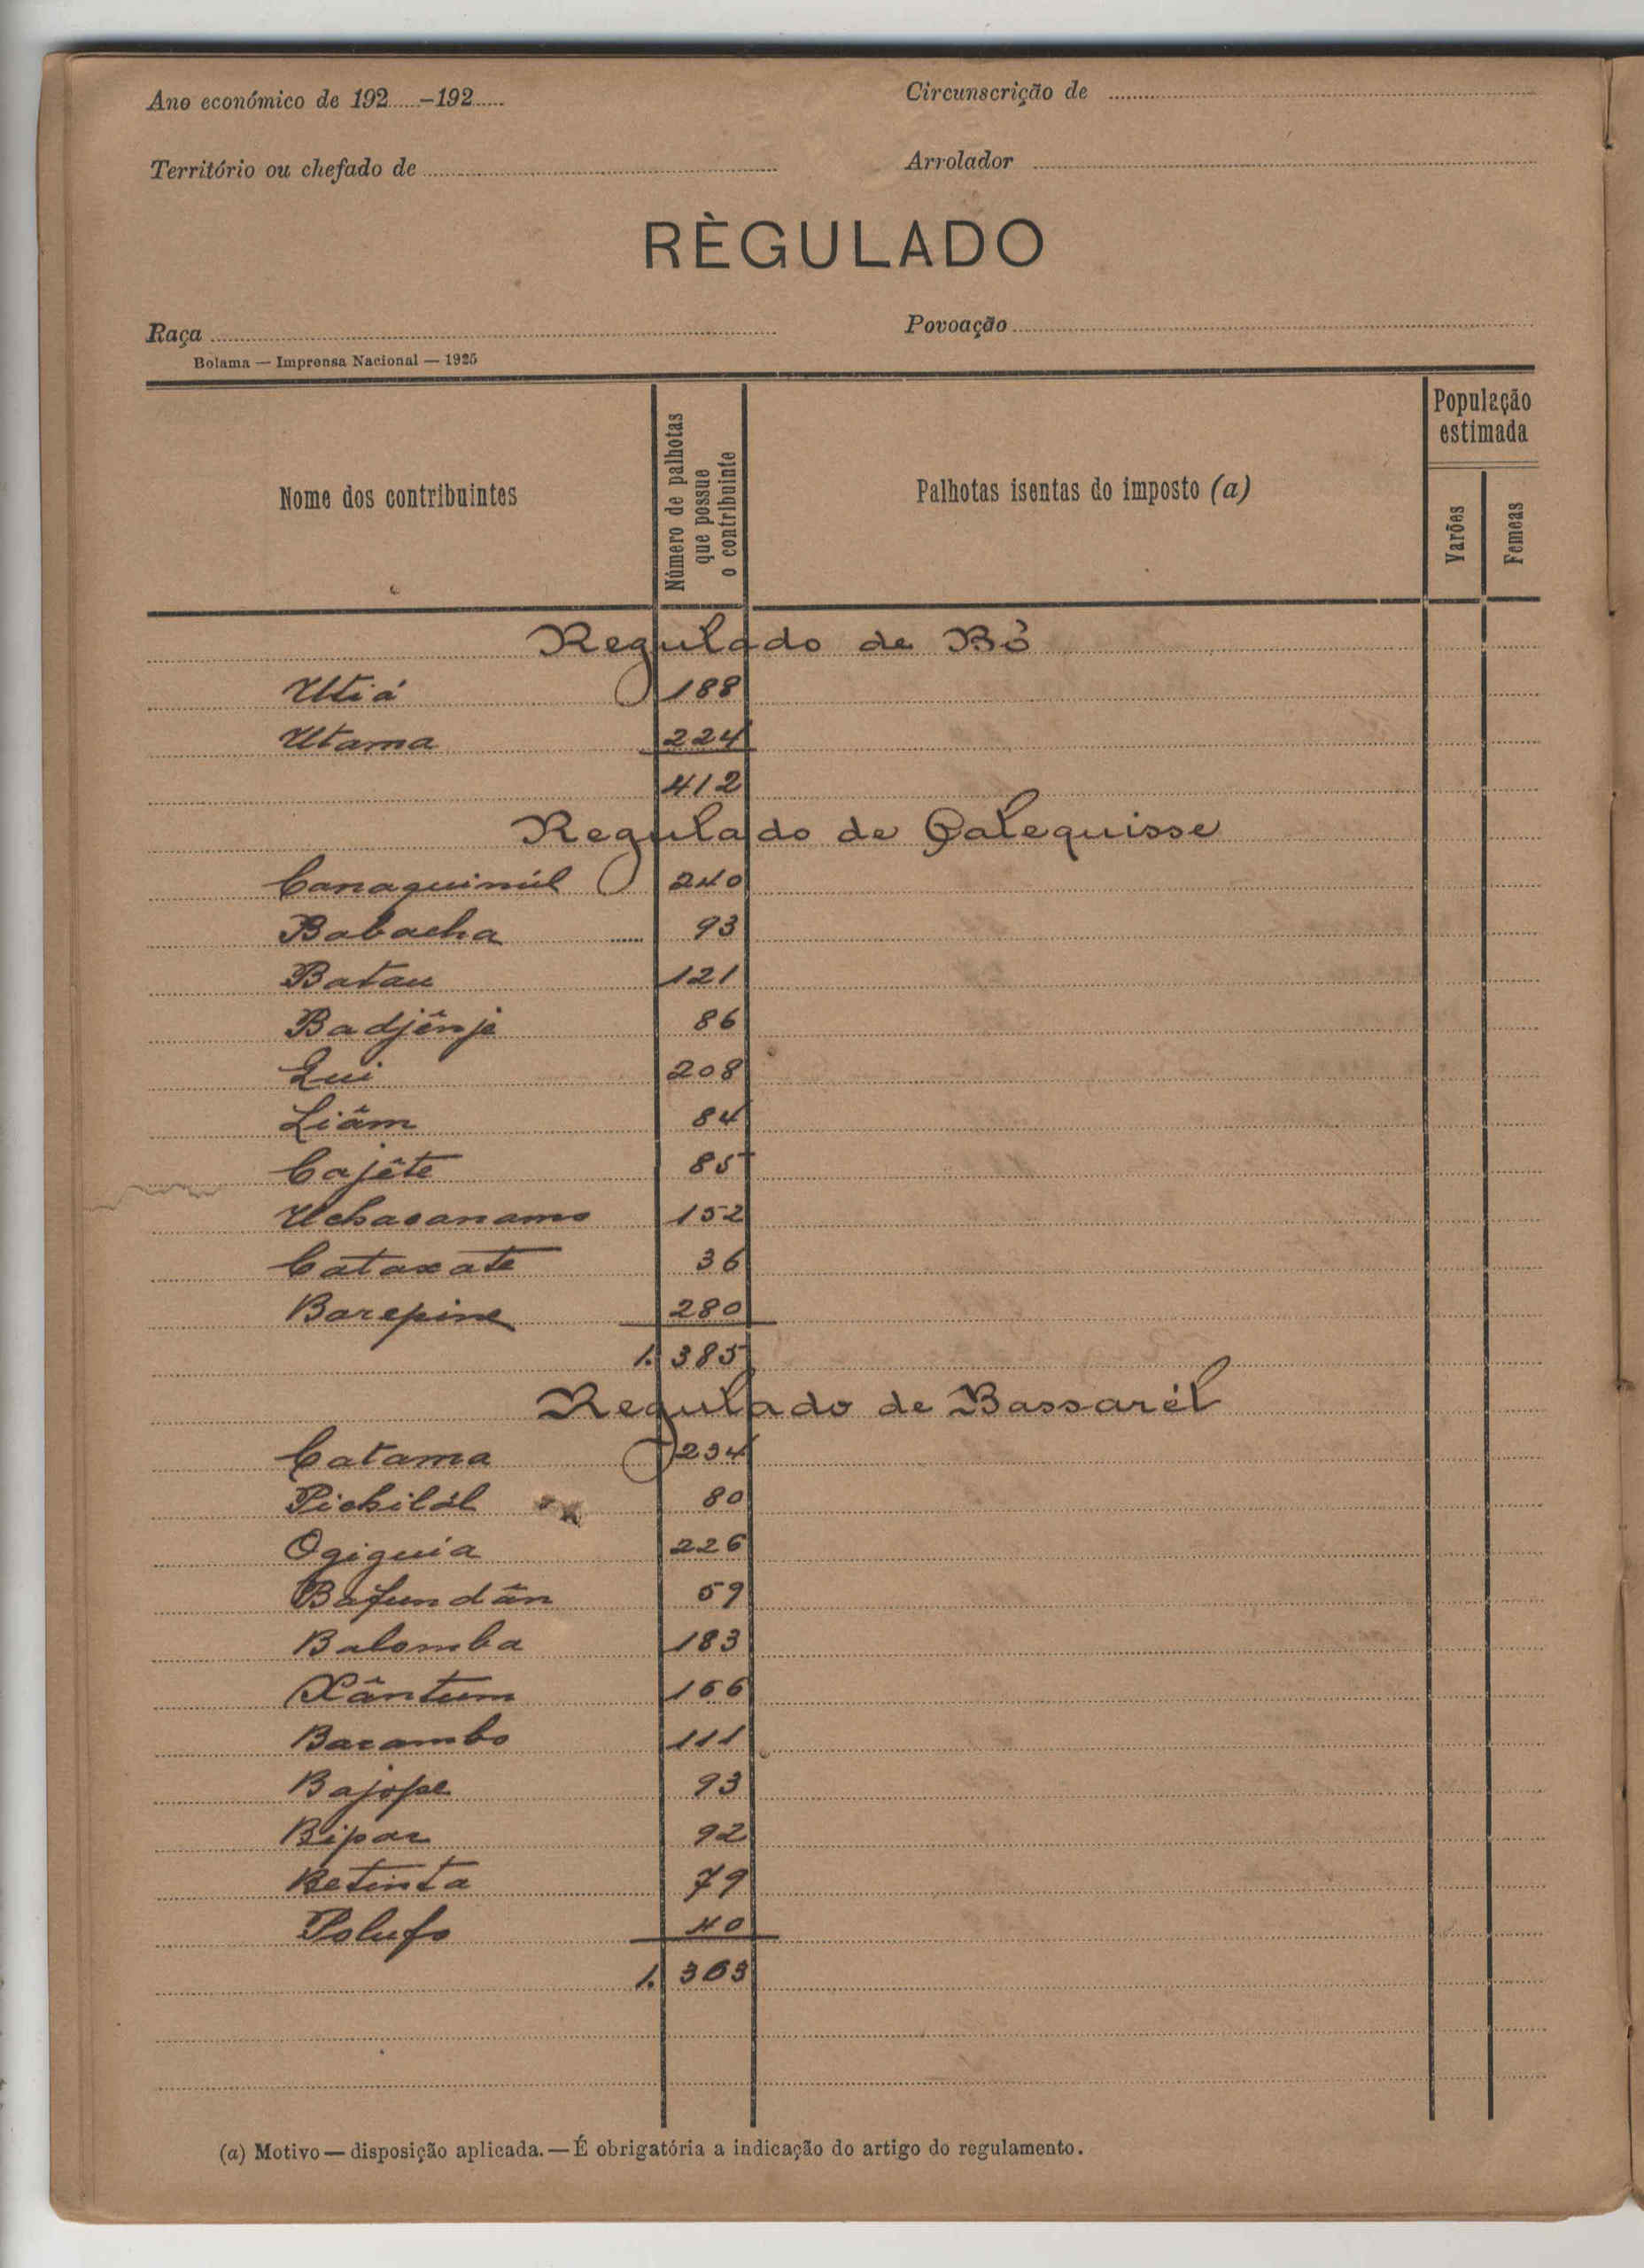 Ano económico de 192.....-192.....
Circunscrição de
Território ou chefado de
Arrolador
RÈGULADO
Raça
Povoação
Bolama — Imprensa Nacional — 1925
Nome dos contribuintes
Número de palhotas que possue o contribuinte
Palhotas isentas do imposto (a)
População estimada
Varões
Femeas
Regulado de Bó
Utiá 188
Utama 224
412
Regulado de Calequisse
Canaquinúl 240
Babacha 93
Batau 121
Badjênje 86
Qui 208
Liâm 84
Cajête 85
Uchacanamo 152
Cataxate 36
Barepine 280
1.385
Regulado de Bassarél
Catama 234
Pichilál 80
Ogiguia 226
Bafundân 59
Balomba 183
Xântum 166
Bacambo 111
Bajope 93
Bipar 92
Betinta 79
Polufo 40
1.363
(a) Motivo — disposição aplicada. — É obrigatória a indicação do artigo do regulamento.